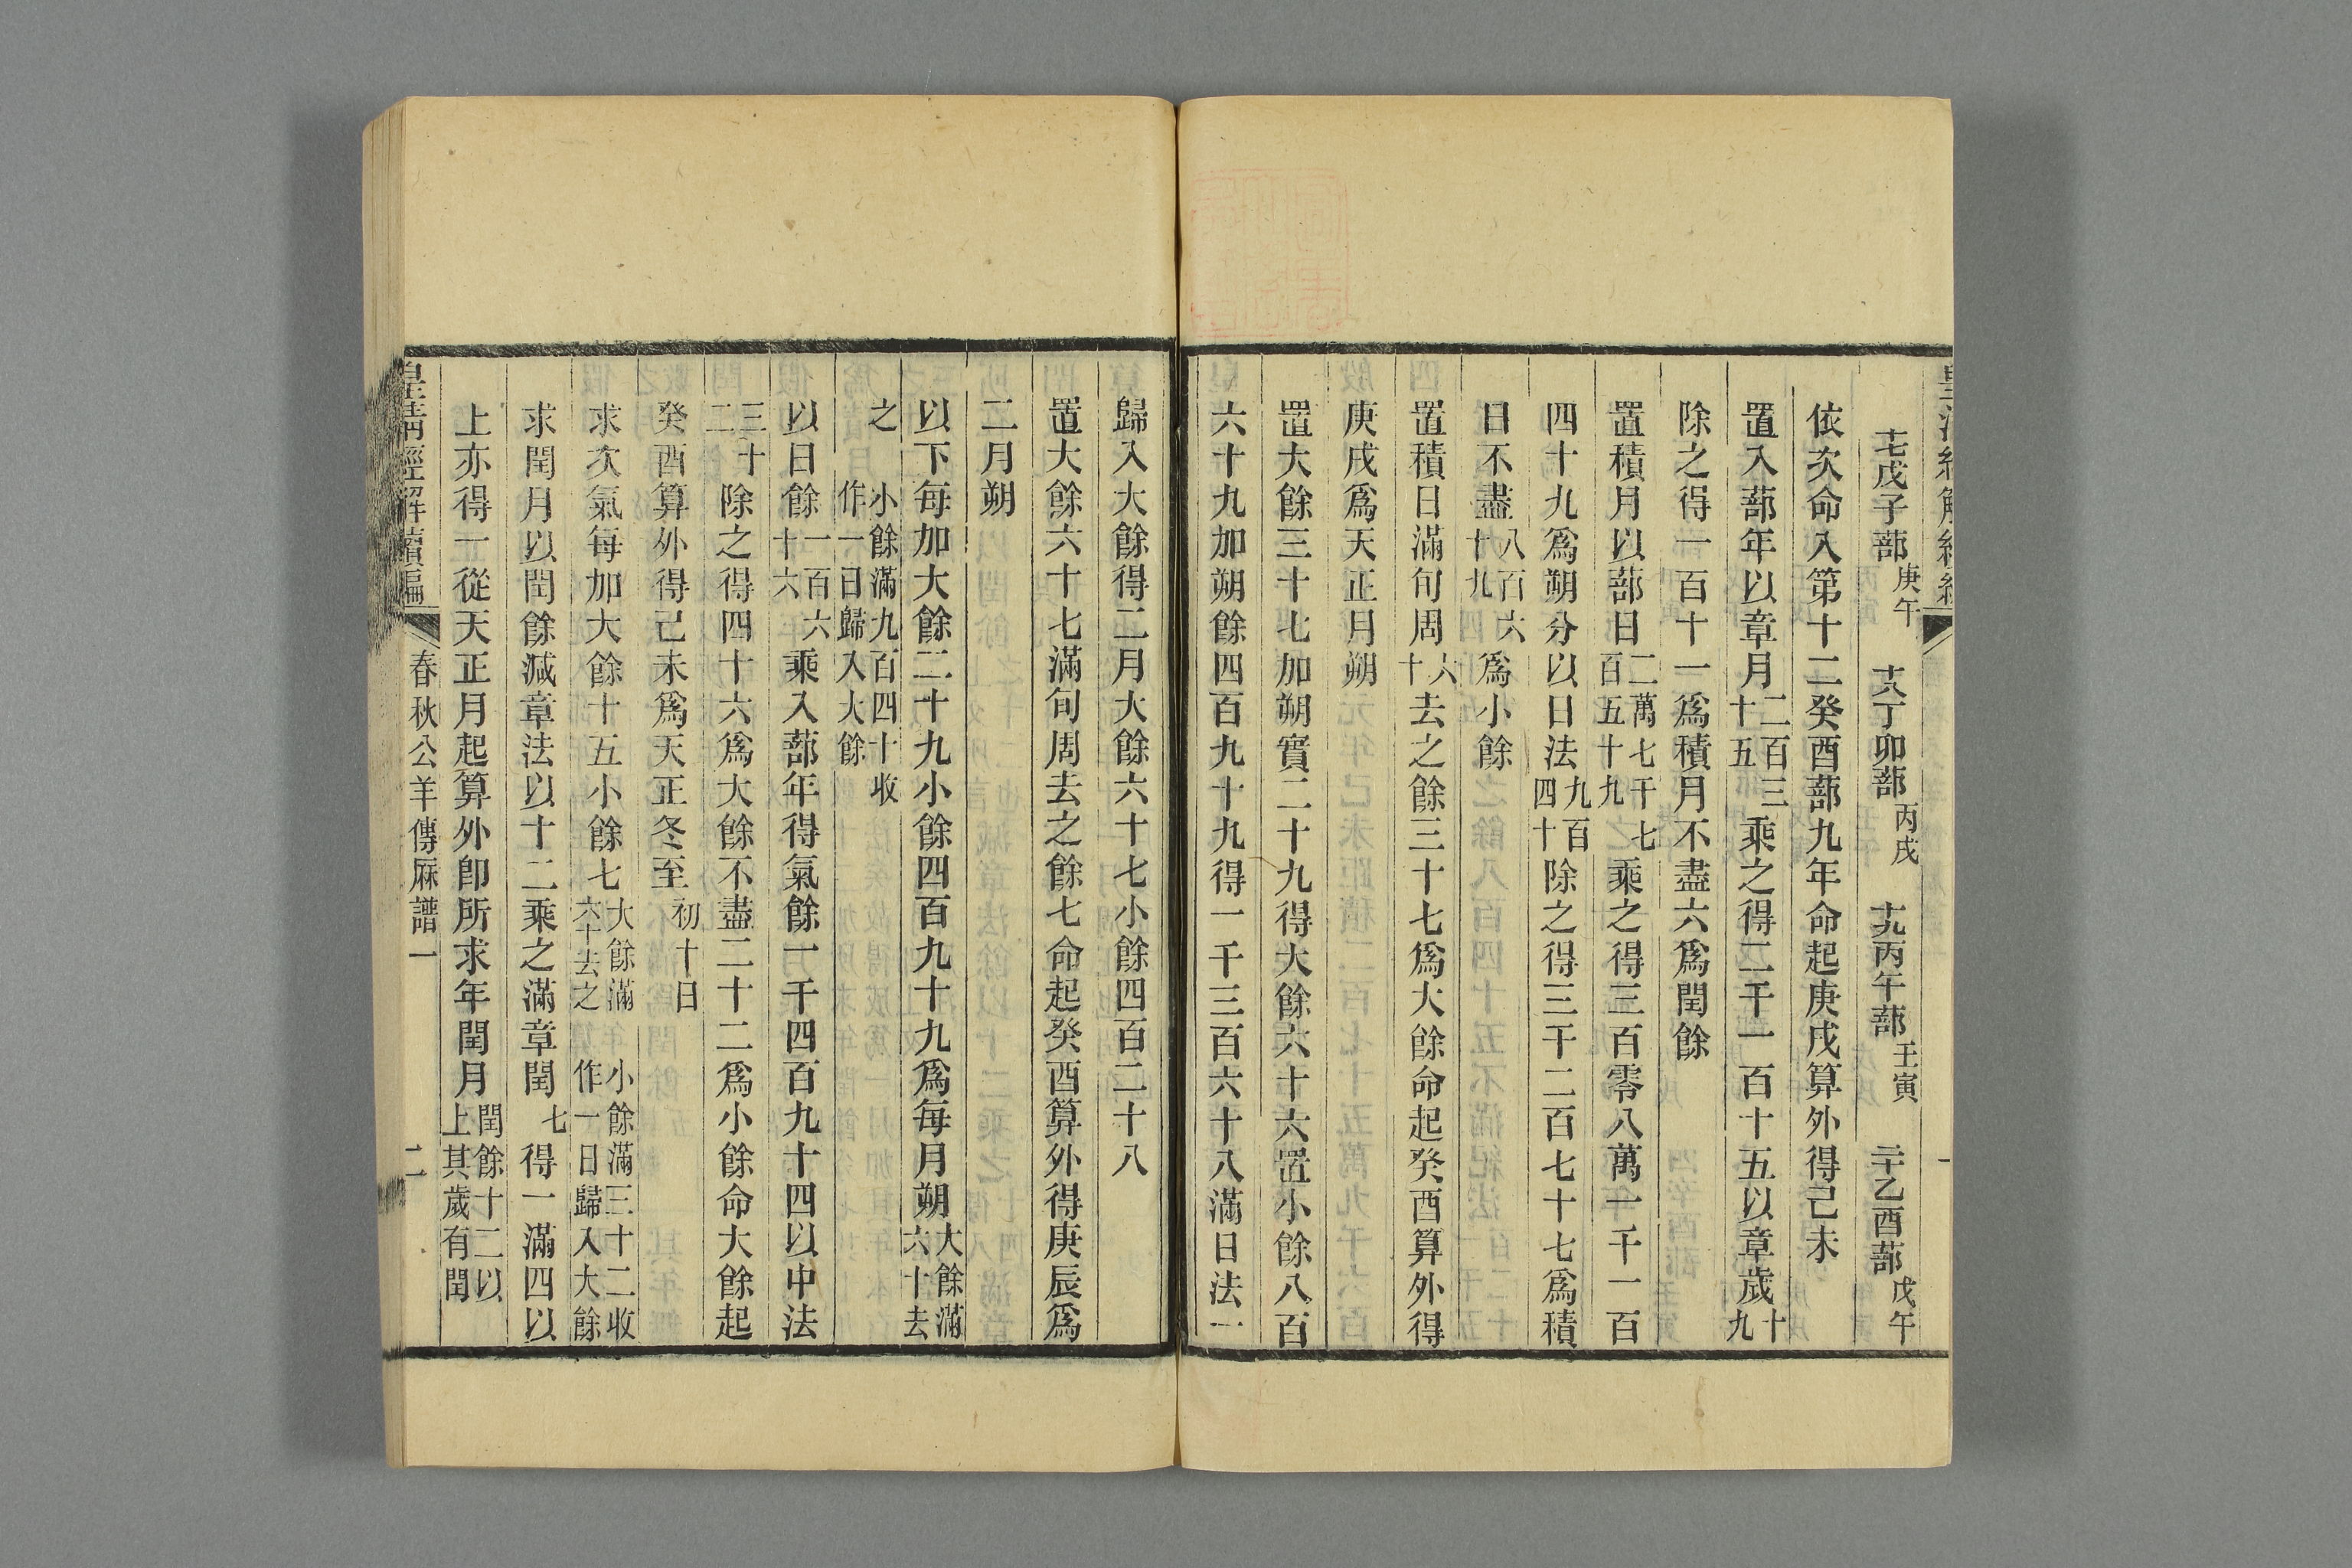 十七戊子蔀庚午 十八丁卯蔀丙戌 十九丙午蔀壬寅 二十乙酉蔀戊午
依次命入第十二癸酉蔀九年命起庚戌算外得己未
置入蔀年以章月二百三十五乘之得二千一百十五以章歲十九
除之得一百十一爲積月不盡六爲閏餘
置積月以蔀日二萬七千七百五十九乘之得三百零八萬一千一百
四十九爲朔分以日法九百四十除之得三千二百七十七爲積
日不盡八百六十九爲小餘
置積日滿旬周六十去之餘三十七爲大餘命起癸酉算外得
庚戌爲天正月朔
置大餘三十七加朔實二十九得大餘六十六置小餘八百
六十九加朔餘四百九十九得一千三百六十八滿日法一
歸入大餘得二月大餘六十七小餘四百二十八
置大餘六十七滿旬周去之餘七命起癸酉算外得庚辰爲
二月朔
以下每加大餘二十九小餘四百九十九爲每月朔大餘滿六十去
之 小餘滿九百四十收作一日歸入大餘
以日餘一百六十六乘入蔀年得氣餘一千四百九十四以中法
三十二除之得四十六爲大餘不盡二十二爲小餘命大餘起
癸酉算外得己未爲天正冬至初十日
求次氣每加大餘十五小餘七大餘滿六十去之 小餘滿三十二收作一日歸入大餘
求閏月以閏餘減章法以十二乘之滿章閏七得一滿四以
上亦得一從天正月起算外卽所求年閏月閏餘十二以上其歲有閏
皇清經解續編
春秋公羊傳厤譜一
二